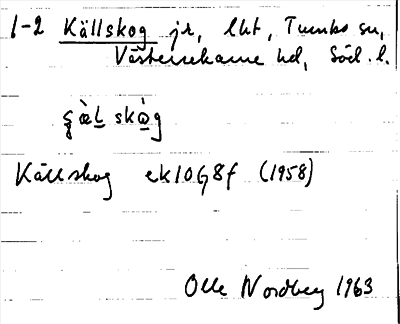 1-2 Källskog jr, lht, Tumbo sn,
Västerrekarne hd, Söd. l.
ʂὰl skὰg
Källskog ek10G8f (1958)
Olle Nordberg 1963